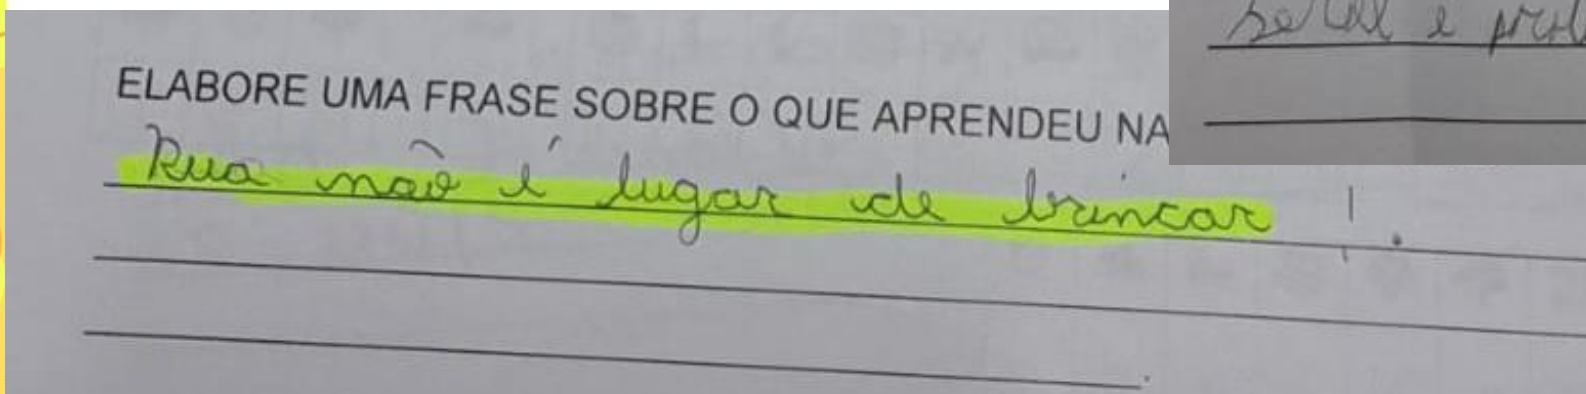 ELABORE UMA FRASE SOBRE O QUE APRENDEU NA
Rua não é lugar de brincar!.